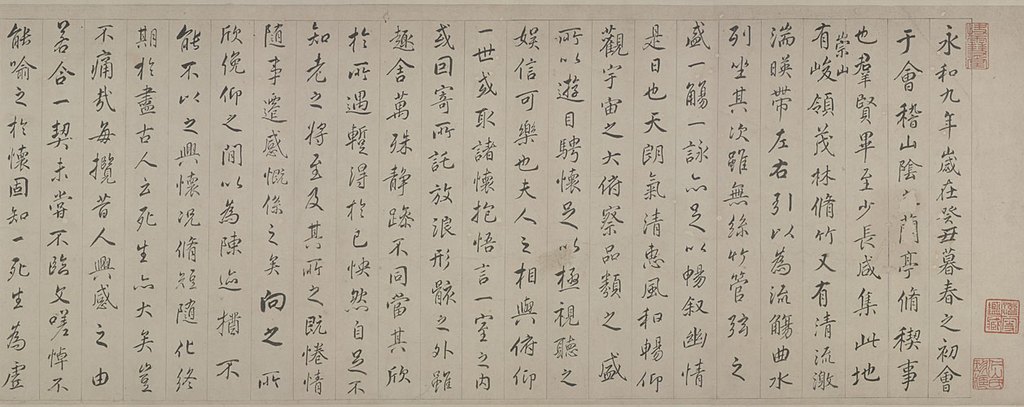 永和九年歲在癸丑暮春之初會
于會稽山陰之蘭亭脩稧事
也羣賢畢至少長咸集此地
有崇山峻領茂林脩竹又有清流激
湍暎帶左右引以為流觴曲水
列坐其次雖無絲竹管弦之
盛一觴一詠亦足以暢叙幽情
是日也天朗氣清惠風和暢仰
觀宇宙之大俯察品類之盛
所以遊目騁懷足以極視聽之
娛信可樂也夫人之相與俯仰
一世或取諸懷抱悟言一室之內
或因寄所託放浪形骸之外雖
趣舍萬殊静躁不同當其欣
於所遇蹔得於己怏然自足不
知老之將至及其所之既惓情
隨事遷感慨係之矣向之所
欣俛仰之間以為陳迹猶不
能不以之興懷況脩短隨化終
期於盡古人云死生亦大矣豈
不痛哉每攬昔人興感之由
若合一契未嘗不臨文嗟悼不
能喻之於懷固知一死生為虛